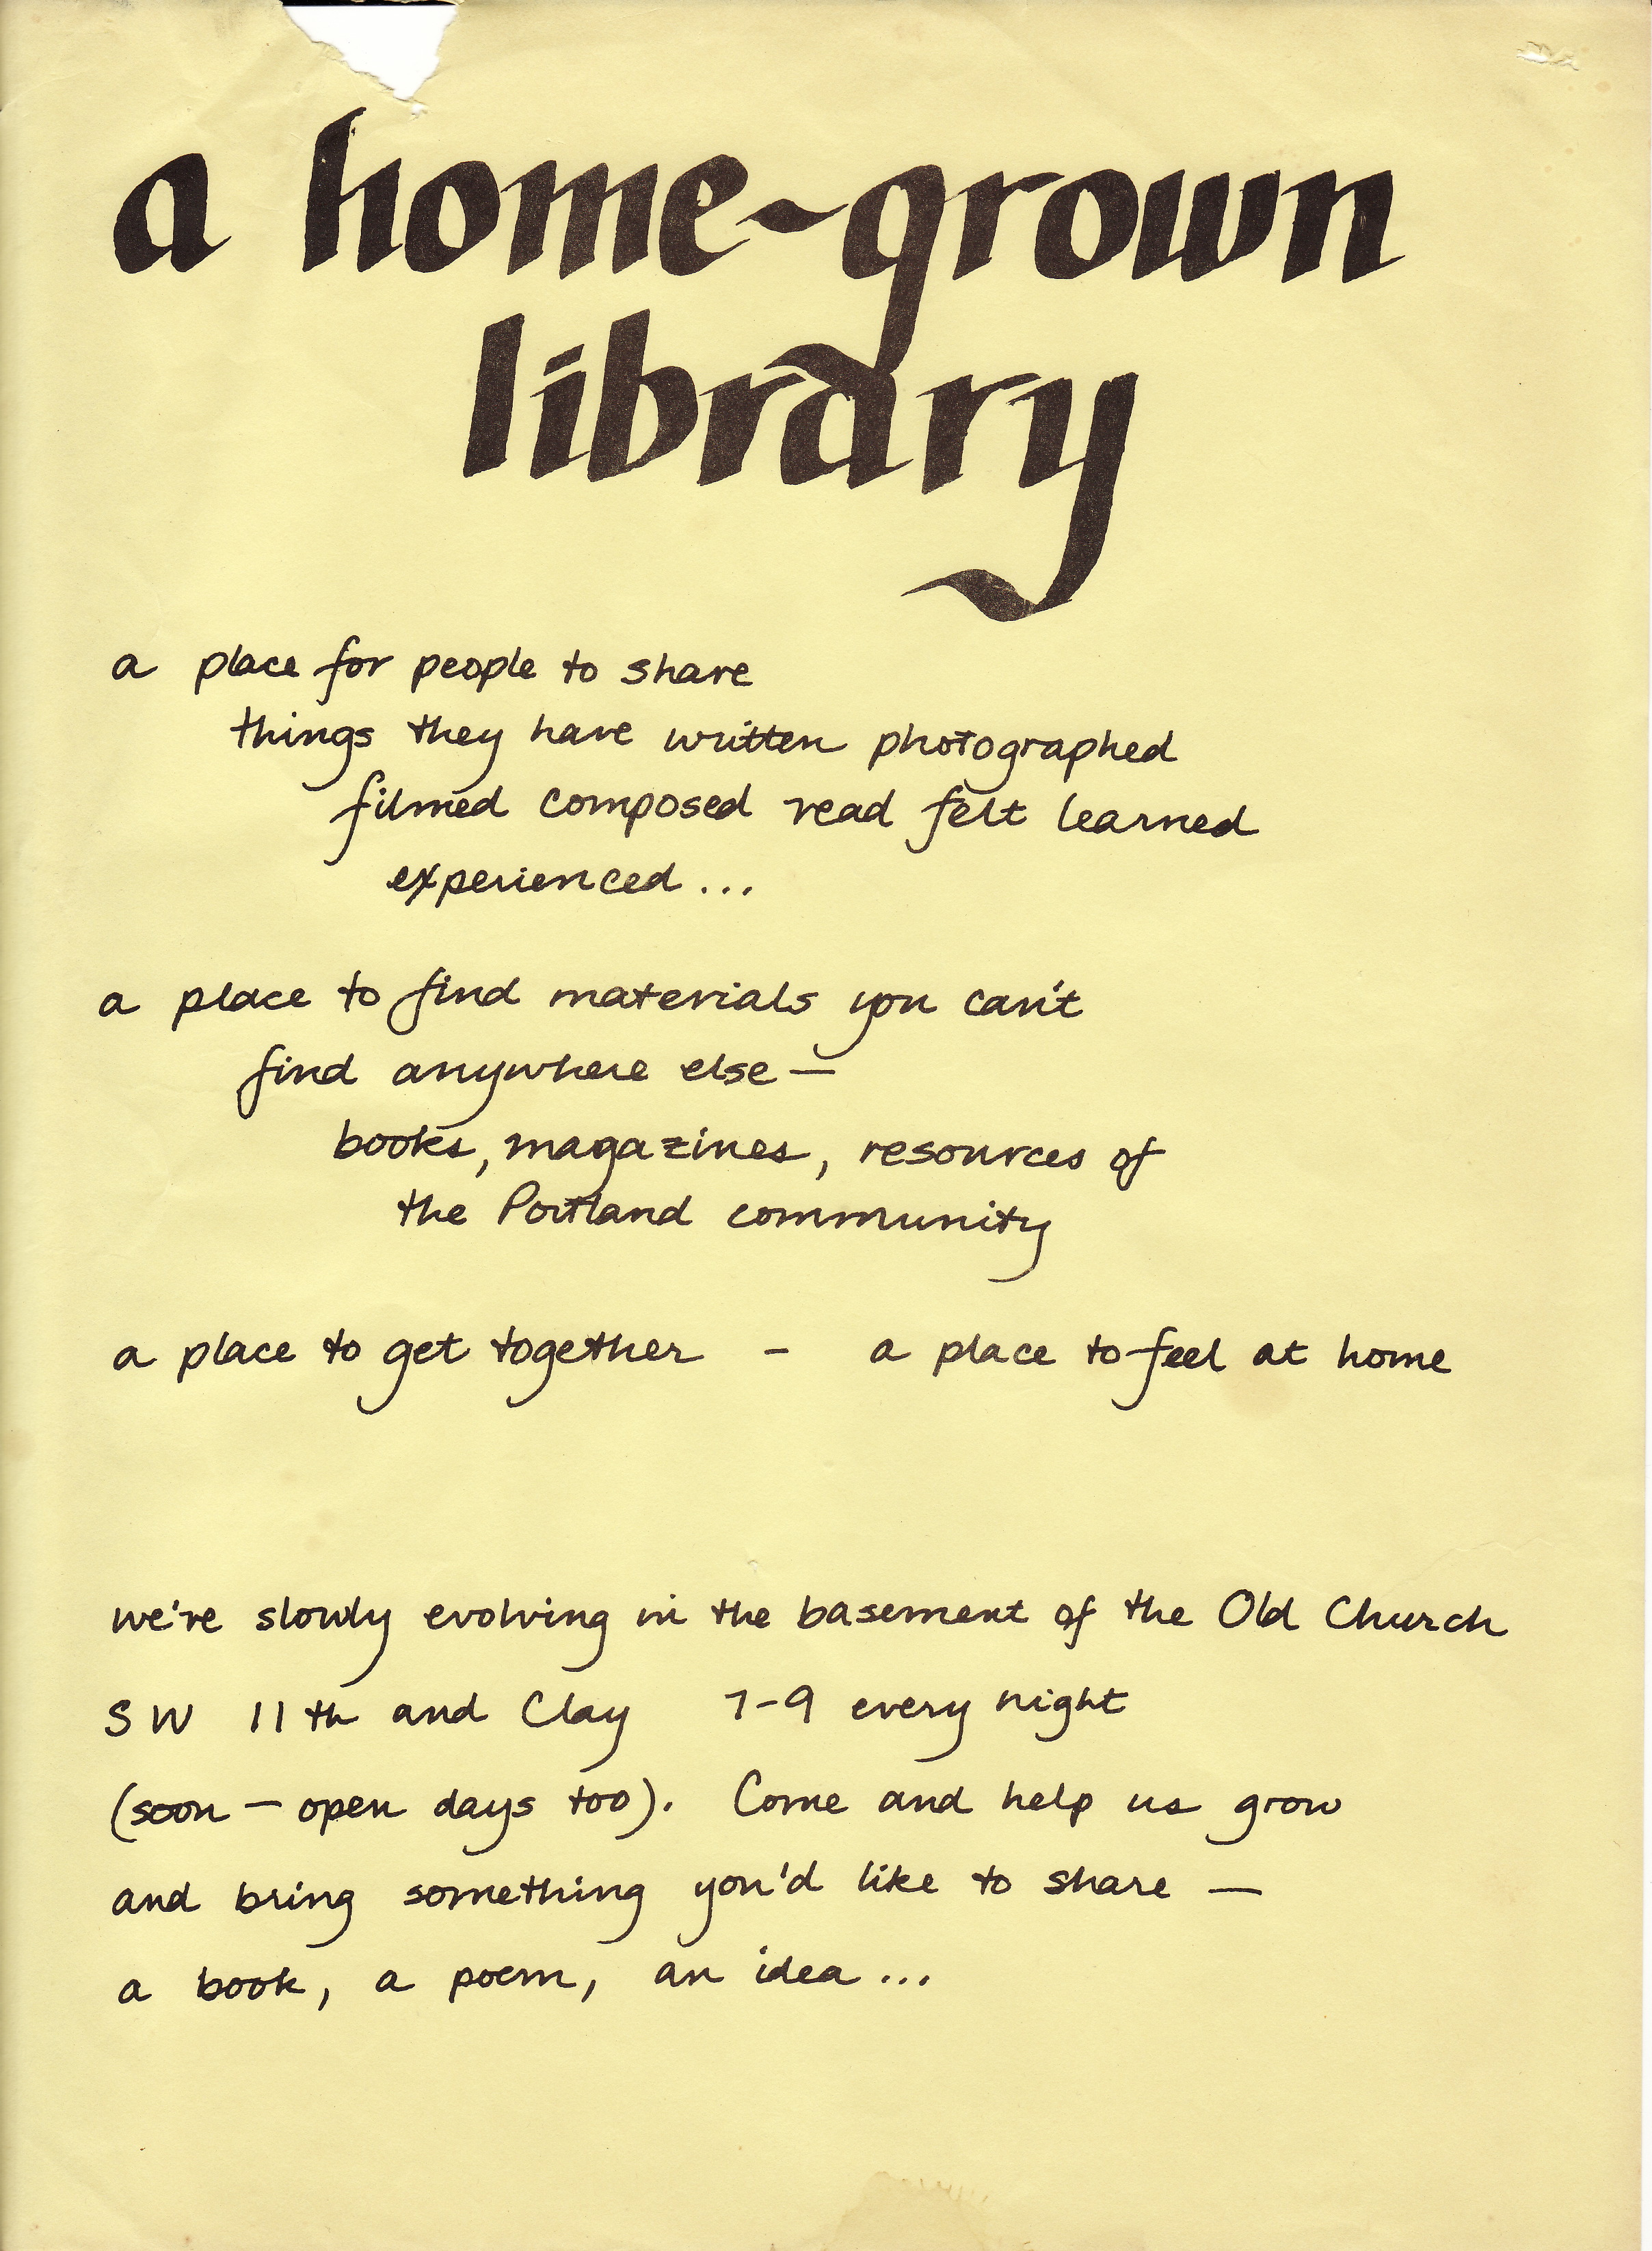 a home-grown
library
a place for people to share
things they have written photographed
filmed composed read felt learned
experienced...
a place to find materials you can't
find anywhere else—
books, magazines, resources of
the Portland community
a place to get together - a place to feel at home
we're slowly evolving in the basement of the Old Church
SW 11th and Clay 7-9 every night
(soon — open days too). Come and help us grow
and bring something you'd like to share —
a book, a poem, an idea...